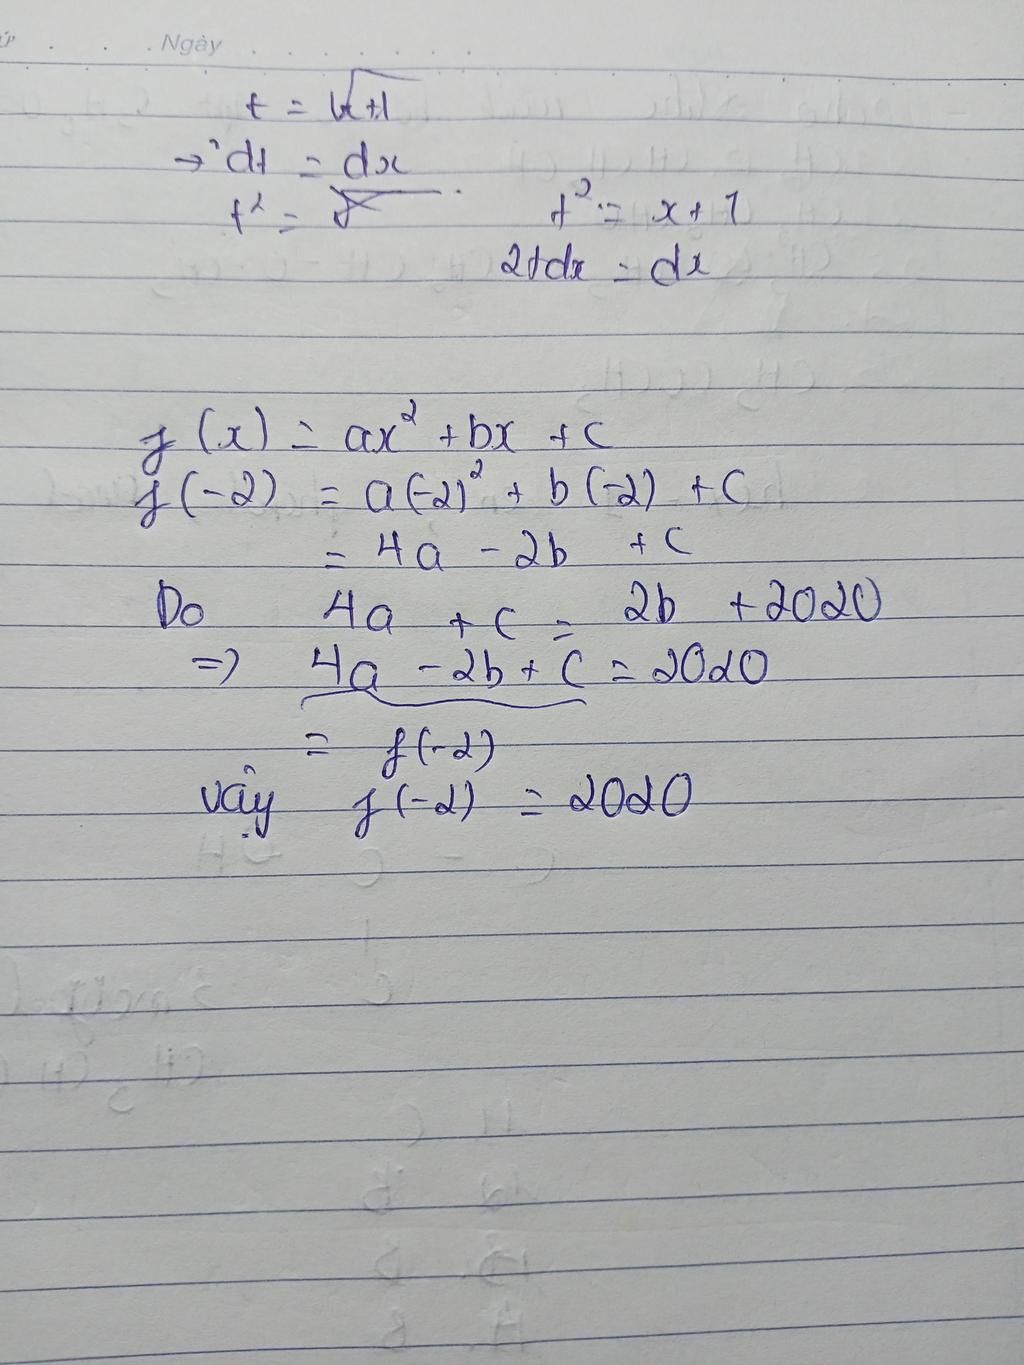 Ngày
t = √x+1
→ dt = dx
t² =
t² = x + 1
2tdx = dx
f(x) = ax² + bx + c
f(-2) = a(-2)² + b(-2) + c
= 4a - 2b + c
Do 4a + c = 2b + 2020
=> 4a - 2b + c = 2020
= f(-2)
vậy f(-2) = 2020